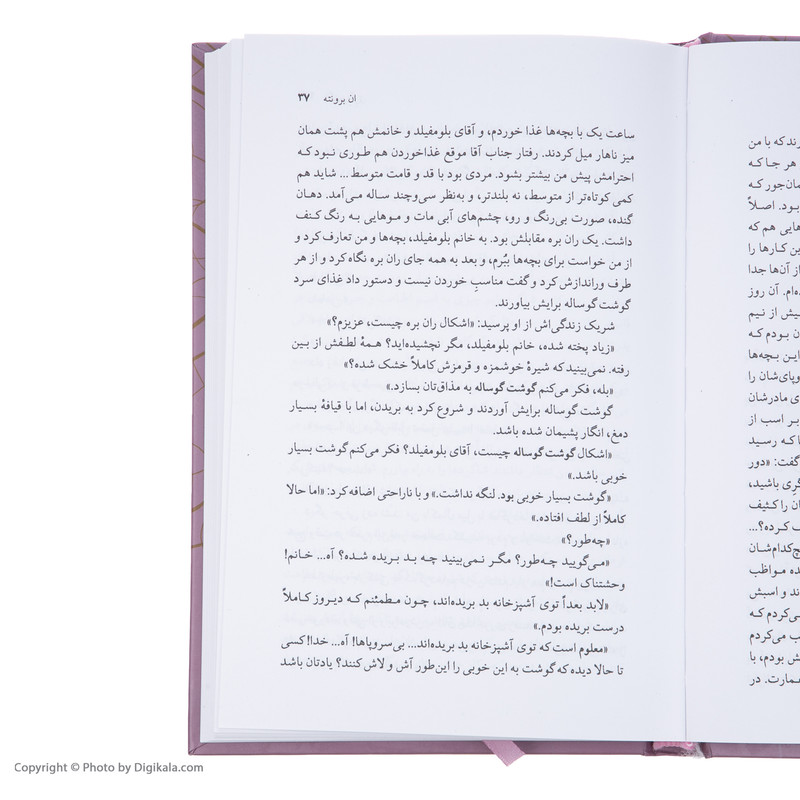 ان برونته ۳۷
ساعت یک با بچه‌ها غذا خوردم، و آقای بلومفیلد و خانمش هم پشت همان
میز ناهار میل کردند. رفتار جناب آقا موقع غذاخوردن هم طوری نبود که
احترامش پیش من بیشتر بشود. مردی بود با قد و قامت متوسط ... شاید هم
کمی کوتاه‌تر از متوسط، نه بلندتر، و به‌نظر سی‌وچند ساله می‌آمد. دهان
گنده، صورت بی‌رنگ و رو، چشم‌های آبی مات و موهایی به رنگ کنف
داشت. یک ران بره مقابلش بود. به خانم بلومفیلد، بچه‌ها و من تعارف کرد و
از من خواست برای بچه‌ها ببُرم، و بعد به همه جای ران بره نگاه کرد و از هر
طرف وراندازش کرد و گفت مناسب خوردن نیست و دستور داد غذای سرد
گوشت گوساله برایش بیاورند.
شریک زندگی‌اش از او پرسید: «اشکال ران بره چیست، عزیزم؟»
«زیاد پخته شده، خانم بلومفیلد، مگر نچشیده‌اید؟ همهٔ لطفش از بین
رفته. نمی‌بینید که شیرهٔ خوشمزه و قرمزش کاملاً خشک شده؟»
«بله، فکر می‌کنم گوشت گوساله به مذاق‌تان بسازد.»
گوشت گوساله برایش آوردند و شروع کرد به بریدن، اما با قیافهٔ بسیار
دمغ، انگار پشیمان شده باشد.
«اشکال گوشت گوساله چیست، آقای بلومفیلد؟ فکر می‌کنم گوشت بسیار
خوبی باشد.»
«گوشت بسیار خوبی بود. لنگه نداشت.» و با ناراحتی اضافه کرد: «اما حالا
کاملاً از لطف افتاده.»
«چه‌طور؟»
«می‌گویید چه‌طور؟ مگر نمی‌بینید چه بد بریده شده؟ آه... خانم!
وحشتناک است!»
«لابد بعداً توی آشپزخانه بد بریده‌اند، چون مطمئنم که دیروز کاملاً
درست بریده بودم.»
«معلوم است که توی آشپزخانه بد بریده‌اند... بی‌سروپاها! آه... خدا! کسی
تا حالا دیده که گوشت به این خوبی را این‌طور آش و لاش کنند؟ یادتان باشد
رند که با من
هر جا که
مان‌جور که
بود. اصلاً
هایی هم که
ین کارها را
از آن‌ها جدا
ده‌ام. آن روز
یش از نیم
ن بودم که
این بچه‌ها
وپای‌شان را
ی مادرشان
بر اسب از
ا که رسید
گفت: «دور
گری باشید،
ن را کثیف
ف کرده؟...
چ‌کدام‌شان
ده مواظب
ند و اسبش
ی‌کردم که
ب می‌کردم
ش بودم، با
عمارت. در
Copyright © Photo by Digikala.com